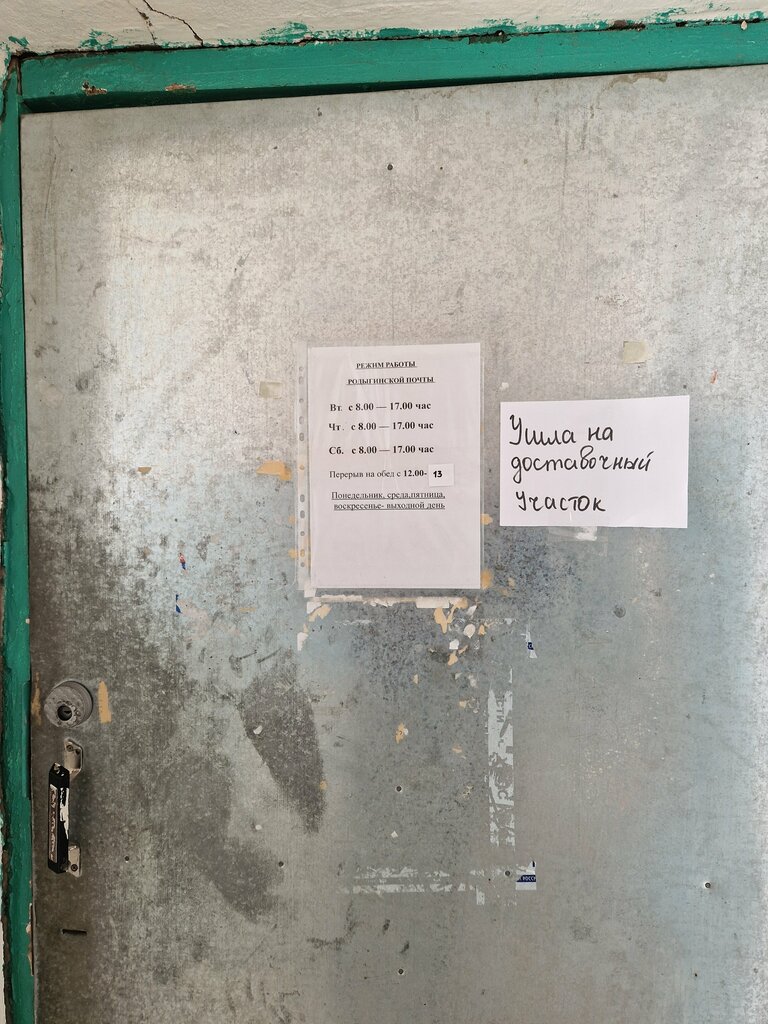 РЕЖИМ РАБОТЫ
РОДЫГИНСКОЙ ПОЧТЫ
Вт. с 8.00 — 17.00 час
Чт. с 8.00 — 17.00 час
Сб. с 8.00 — 17.00 час
Перерыв на обед с 12.00- 13
Понедельник, среда,пятница,
воскресенье- выходной день
Ушла на
доставочный
Участок